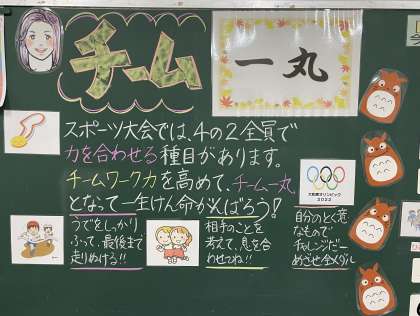 チーム
一丸
スポーツ大会では、4の2全員で
力を合わせる種目があります。
チームワーク力を高めて、チーム一丸
となって一生けん命がんばろう!
うでをしっかり
ふって、最後まで
走りぬける!!
相手のことを
考えて、息を合
わせてね!!
2022
自分のとく意
なもので
チャレンジだー
めざせ金メダル